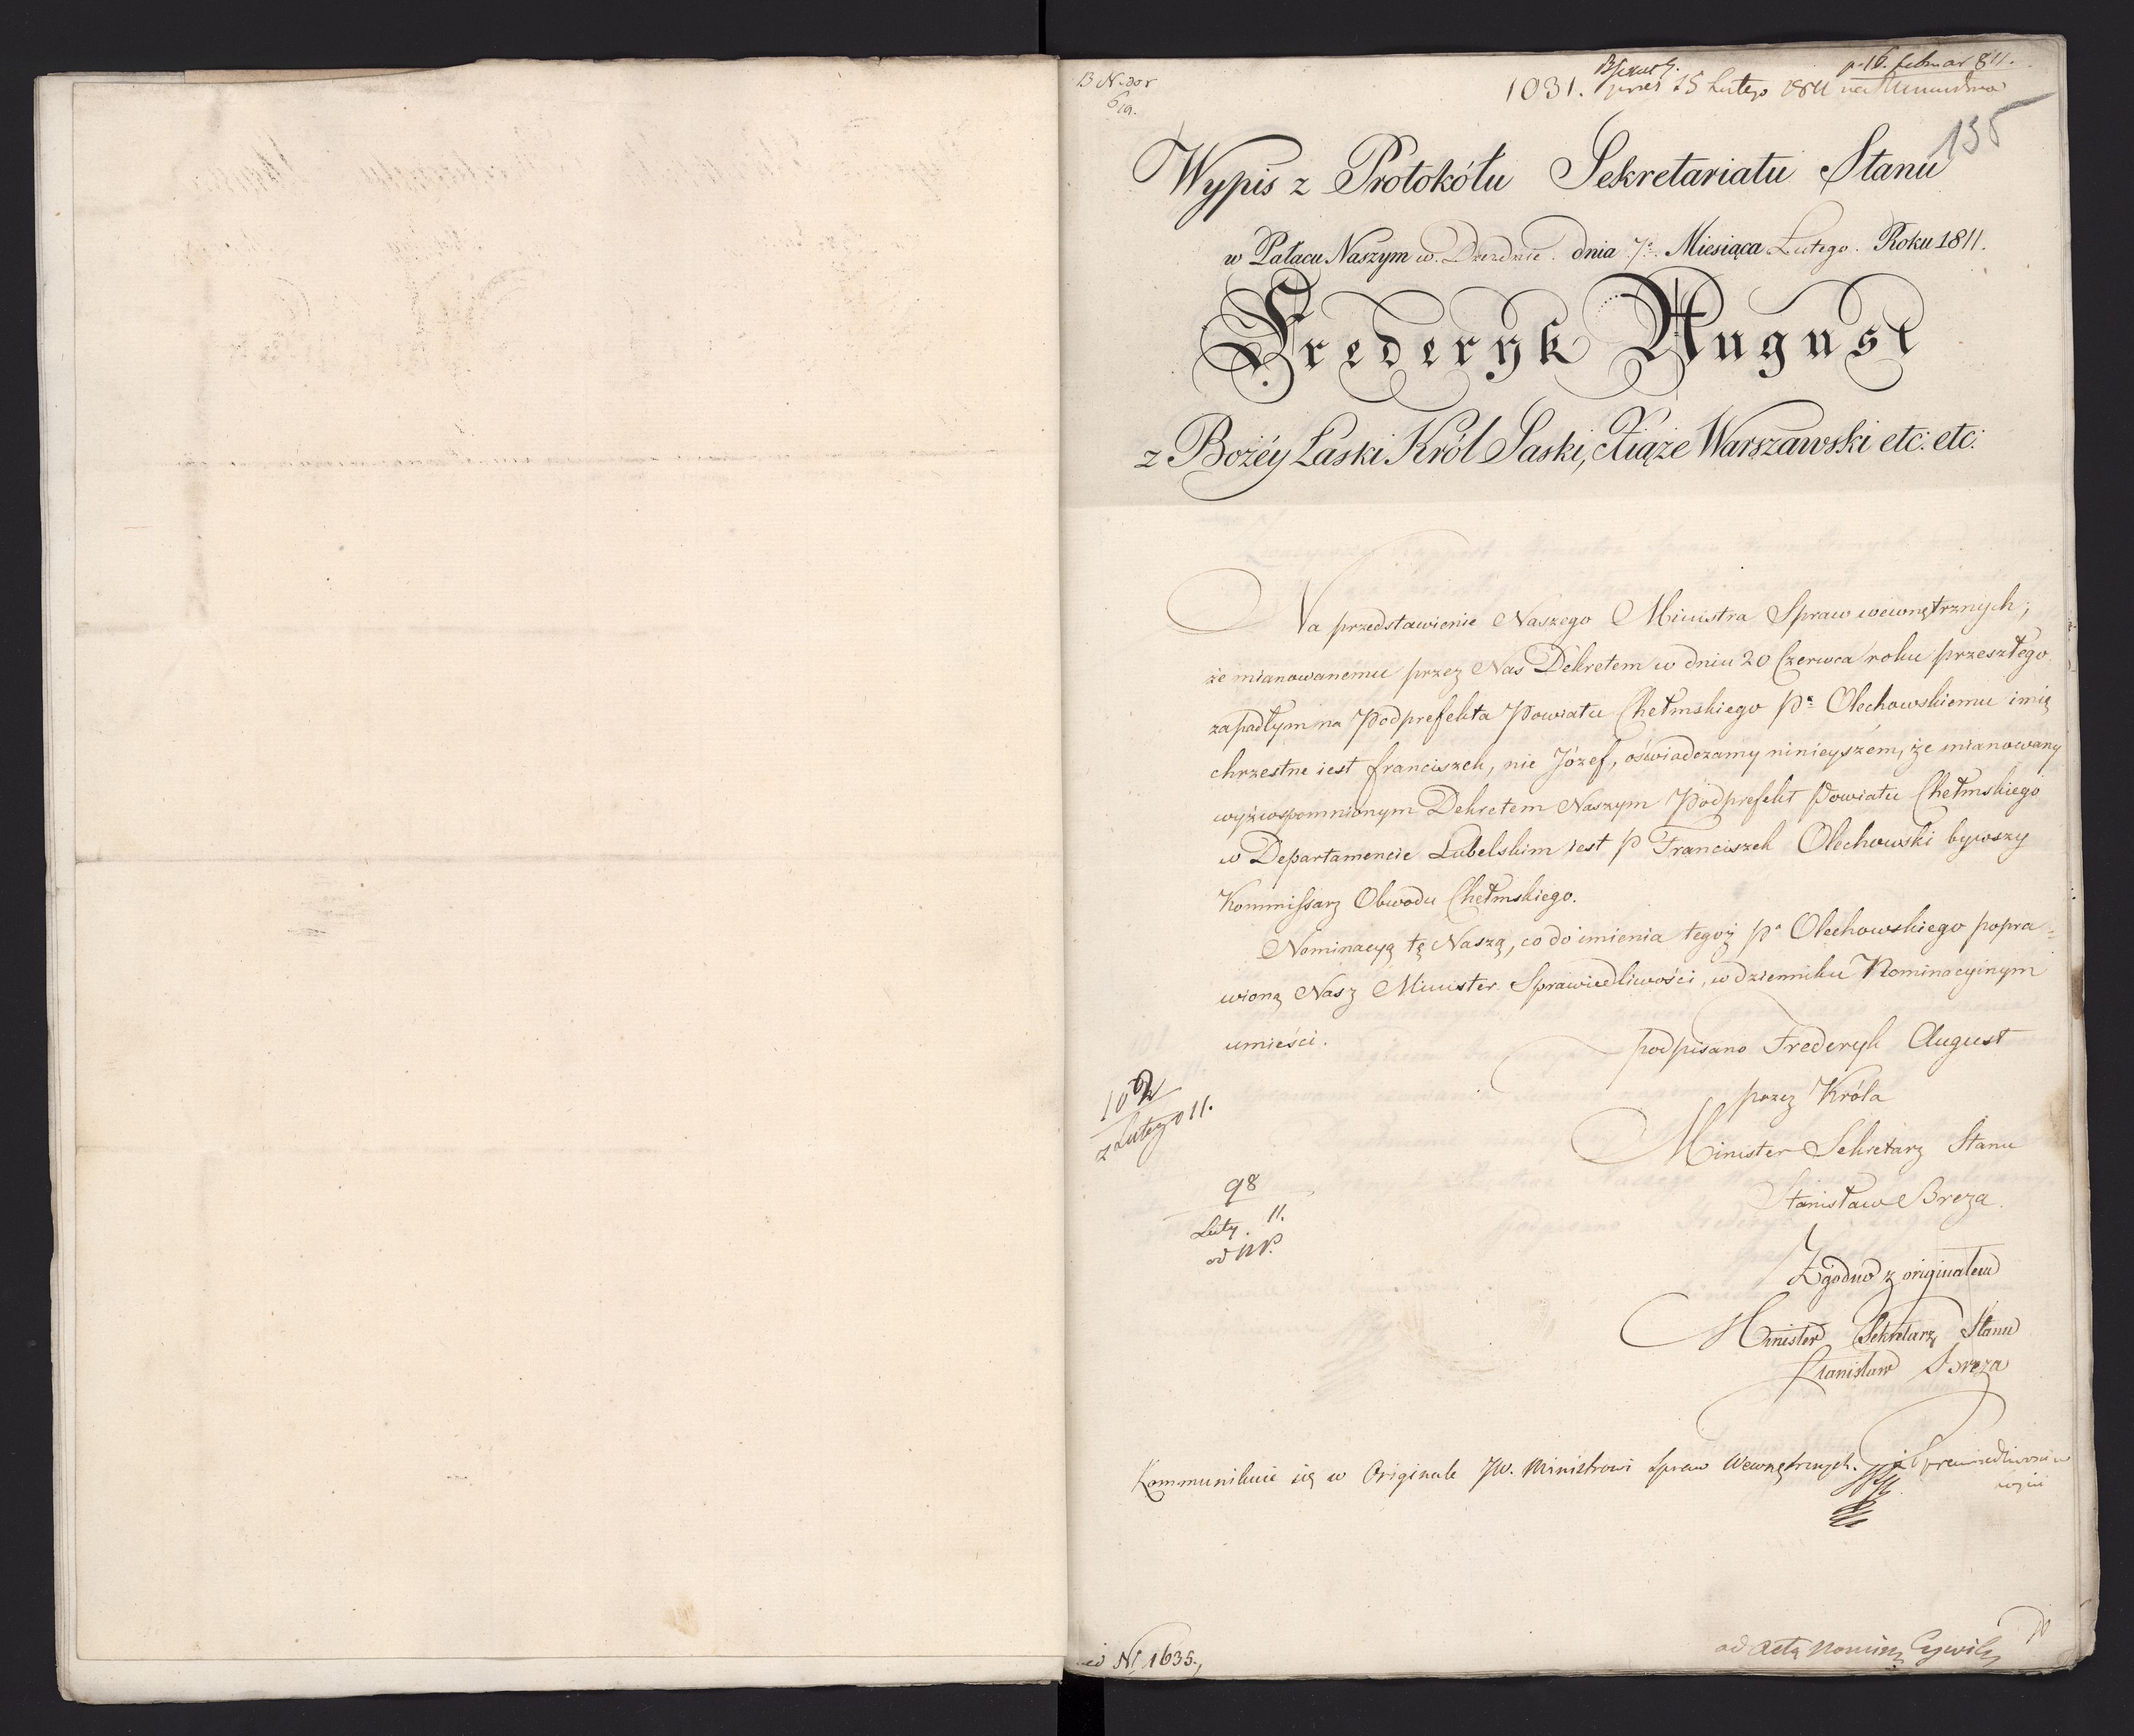 1031.
15 Lutego 1811
p. 16. februar 811.
135
Wypis z Protokółu Sekretariatu Stanu
w Pałacu Naszym w Dreznie dnia 7º Miesiąca Lutego. Roku 1811.
Frederyk August
z Bożéy Łaski Król Saski, Xiąże Warszawski etc: etc:
Na przedstawienie Naszego Ministra Spraw wewnętrznych,
że mianowanému przez Nas Dekretem w dniu 20 Czerwca roku przeszłego
zapadłym na Podprefekta Powiatu Chełmskiego Pª Olechowskiemu imię
chrzestne iest franciszek, nie Józef, oświadczamy ninieyszém, że mianowany
wyżwspomnionym Dekretem Naszym Podprefekt Powiatu Chełmskiego
w Departamencie Lubelskim iest P Franciszek Olechowski bywszy
Kommissarz Obwodu Chełmskiego.
Nominacyą tę Naszą, co do imienia tegoż Pª Olechowskiego popra=
wioną Nasz Minister Sprawiedliwości, w dzienniku Nominacyinym
umieści.
podpisano Frederyk August
przez Króla
Minister Sekretarz Stanu
Stanisław Breza.
z Lutego 11.
98
Luty. 11.
Zgodno z originałem
Minister Sekretarz Stanu
Stanisław Breza
Kommunikuie się w Originale JW. Ministrowi Spraw Wewnętrznych. i Sprawiedliwości
Nº 1635.
ad Acta Nomin: Cywiln